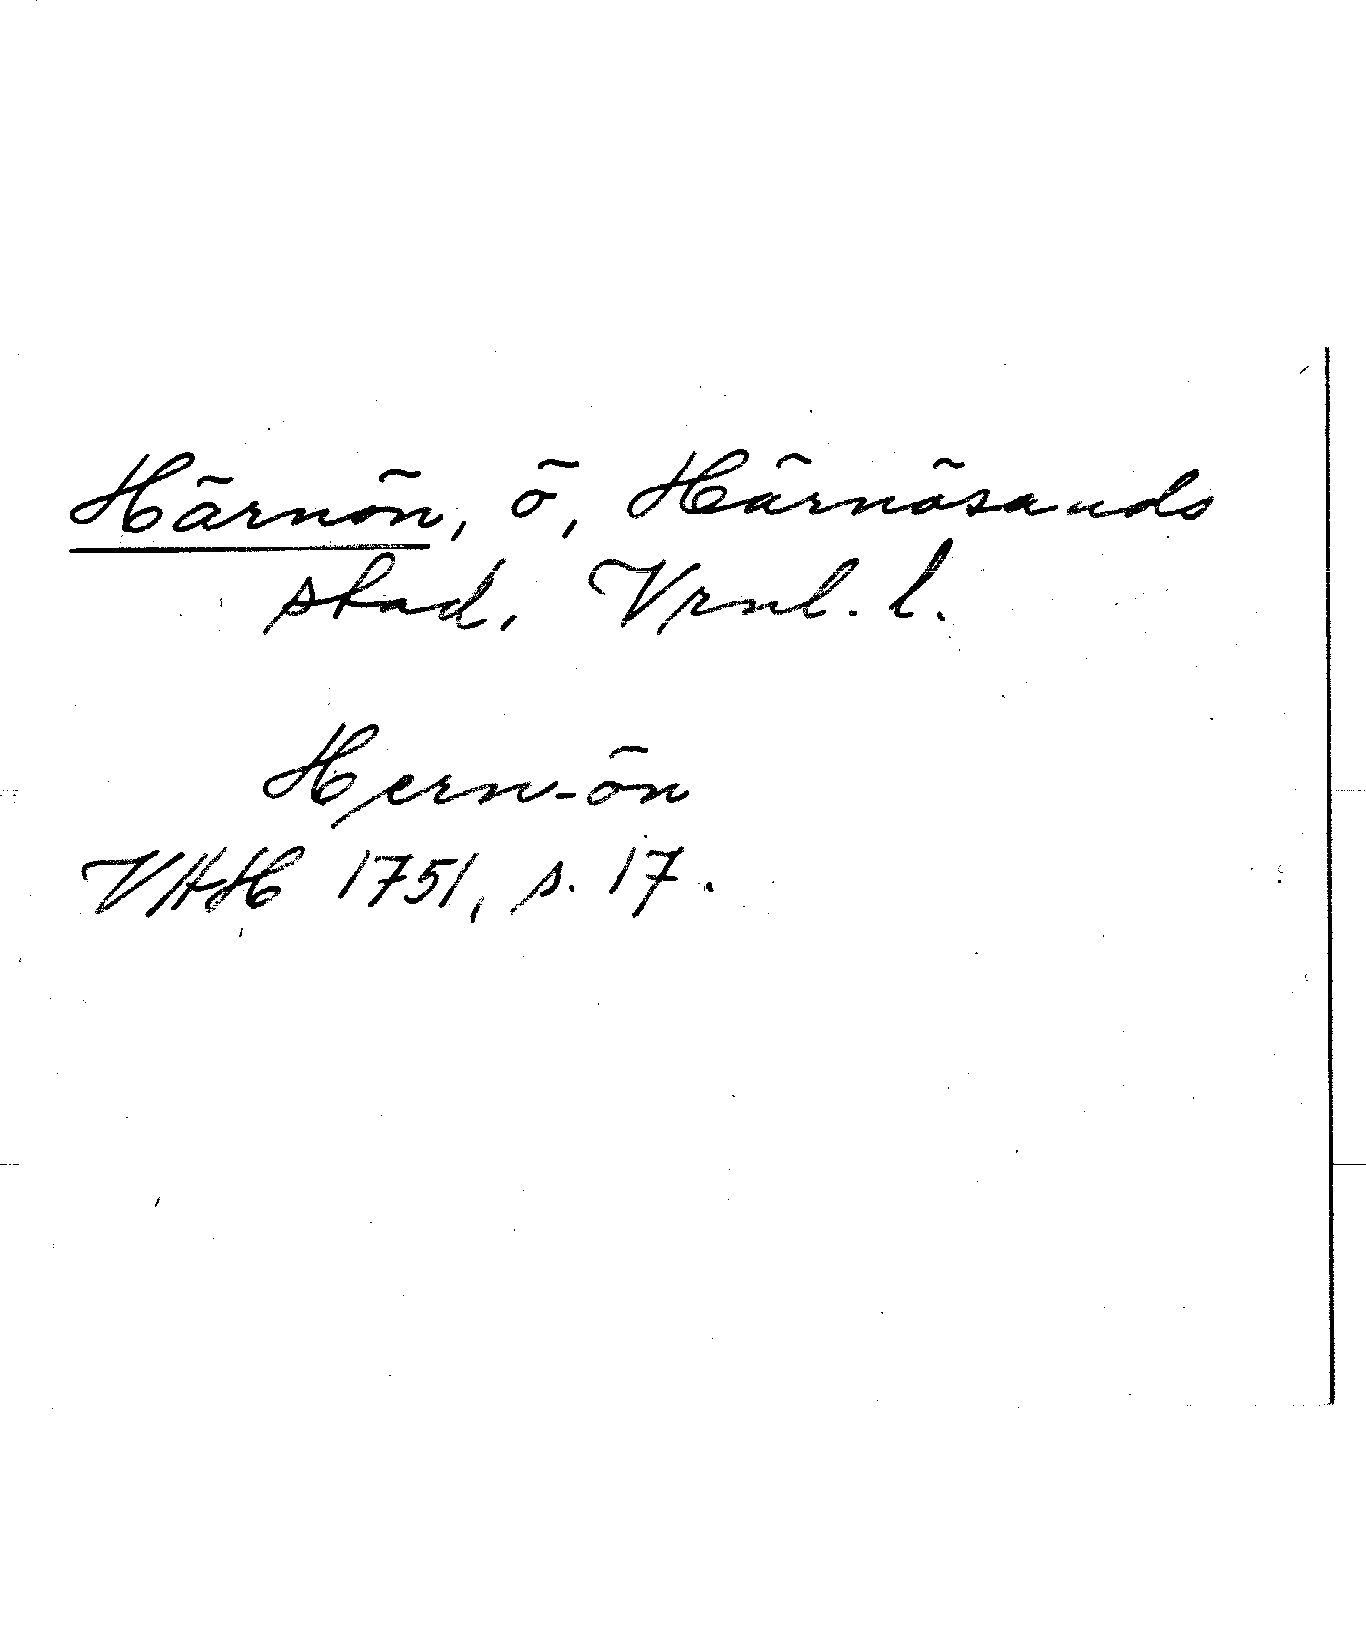 Härnön, ö, Härnösands
stad, Vrnl. l.
Hern-ön
VAH 1751, s. 17.